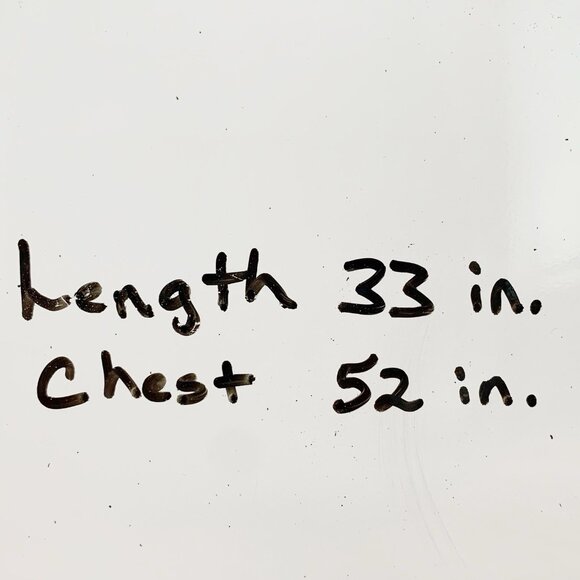 Length 33 in.
Chest 52 in.